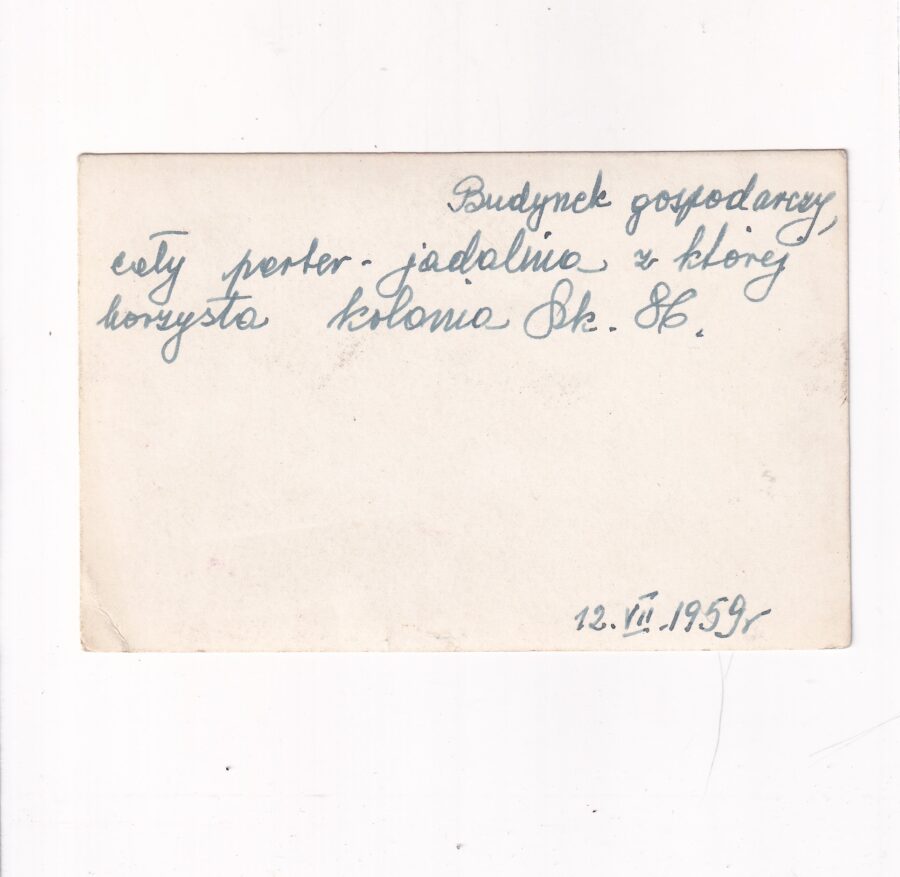 Budynek gospodarczy,
cały parter - jadalnia z której
korzysta kolonia Szk. 86.
12.VII.1959r